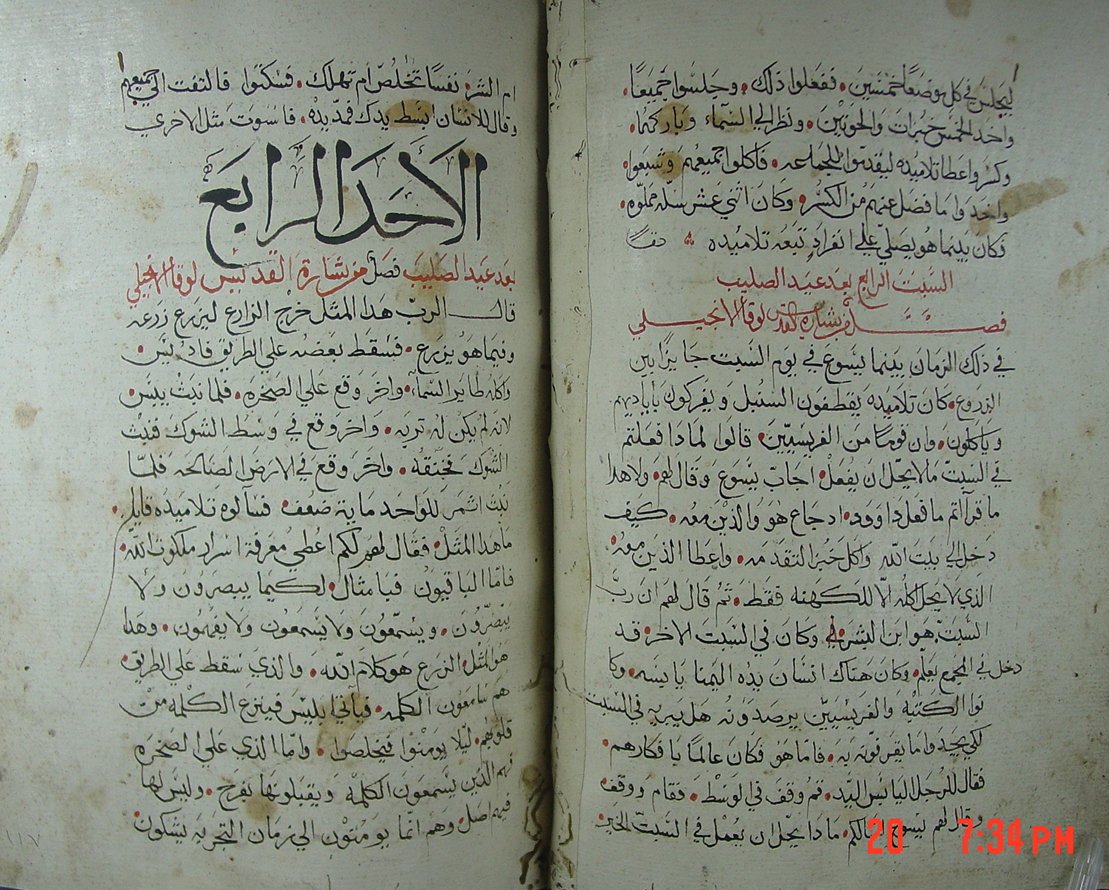 ليجلس في كل موضعًا خمسين • ففعلوا ذلك • وجلسوا جميعًا •
واخد الخمس خبزات والحوتين • ونظر الي السماء وباركهما •
وكسر واعطا تلاميده ليقدموا للجماعه • فاكلوا جميعهم وشبعوا
واخدوا ما فضل عنهم من الكسر • وكان اثني عشر سله مملوه •
فكان بينما هو يصلي علي انفراد تبعه تلاميده
السبت الرابع بعد عيد الصليب
فصل من بشارة القديس لوقا الانجيلي
في ذلك الزمان بينما يسوع في يوم السبت جايزًا بين
الزروع • كان تلاميده يقطفون السنبل ويفركون باياديهم
وياكلون • وان قومًا من الفريسيين • قالوا لمادا فعلتم
في السبت ما لا يحل ان يفعل • اجاب يسوع وقال لهم • ولا هدا
ما قراتم ما فعل داوود • اد جاع هو والذين معه • كيف
دخل الي بيت الله واكل خبز التقدمه • واعطا الذين معه •
الذي لا يحل اكله الا للكهنه فقط • تم قال لهم ان رب
السبت هو ابن البشر • وكان في السبت الاخر • قد
دخل في المجمع يعلم • وكان هناك انسان يده اليمنا يابسه • وكا
نوا الكتبه والفريسيين يرصدونه هل يبريه في السبت
لكي يجدوا ما يقرفونه به • فاما هو فكان عالمًا بافكارهم •
فقال للرجل اليابس اليد • قم وقف في الوسط • فقام ووقف •
وقال لهم يسوع اسالكم • مادا يحل ان يعمل في السبت الخير •
ام الشر • نفسًا تخلص ام تهلك • فسكتوا فالتفت الي جميعهم
وقال للانسان ابسط يدك فمد يده • فاستوت متل الاخري
الاحد الرابع
بعد عيد الصليب فصل من بشارة القديس لوقا الانجيلي
قال الرب هدا المتل خرج الزارع ليزرع زرعه
وفيما هو يزرع • فسقط بعضه علي الطريق فاديس •
واكله طاير السماء • واخر وقع علي الصخره • فلما نبت يبس •
لانه لم يكن له تربه • واخر وقع في وسط الشوك فنبت
الشوك فخنقه • واخر وقع في الارض الصالحه فلما
نبت اتمر للواحد مايه ضعف • فسالوه تلاميده قايلين •
ما هدا المتل • فقال لهم لكم اعطي معرفة اسرار ملكوت الله •
فاما الباقيون فبامثال • لكيما يبصرون ولا
يبصرون • ويسمعون ولا يسمعون ولا يفهمون • وهدا
هو المتل • الزرع هو كلام الله • والدي سقط علي الطريق •
هم سامعون الكلمه • فياتي ابليس فينزع الكلمه من
قلوبهم • ليلا يومنوا فيخلصوا • واما الدي علي الصخره
فهم الذين يسمعون الكلمه ويقبلونها بفرح • وليس لها
فيهم اصل • وهم انما يومنون الي زمان التجربه يشكون
١١٧
20 7:34 PM